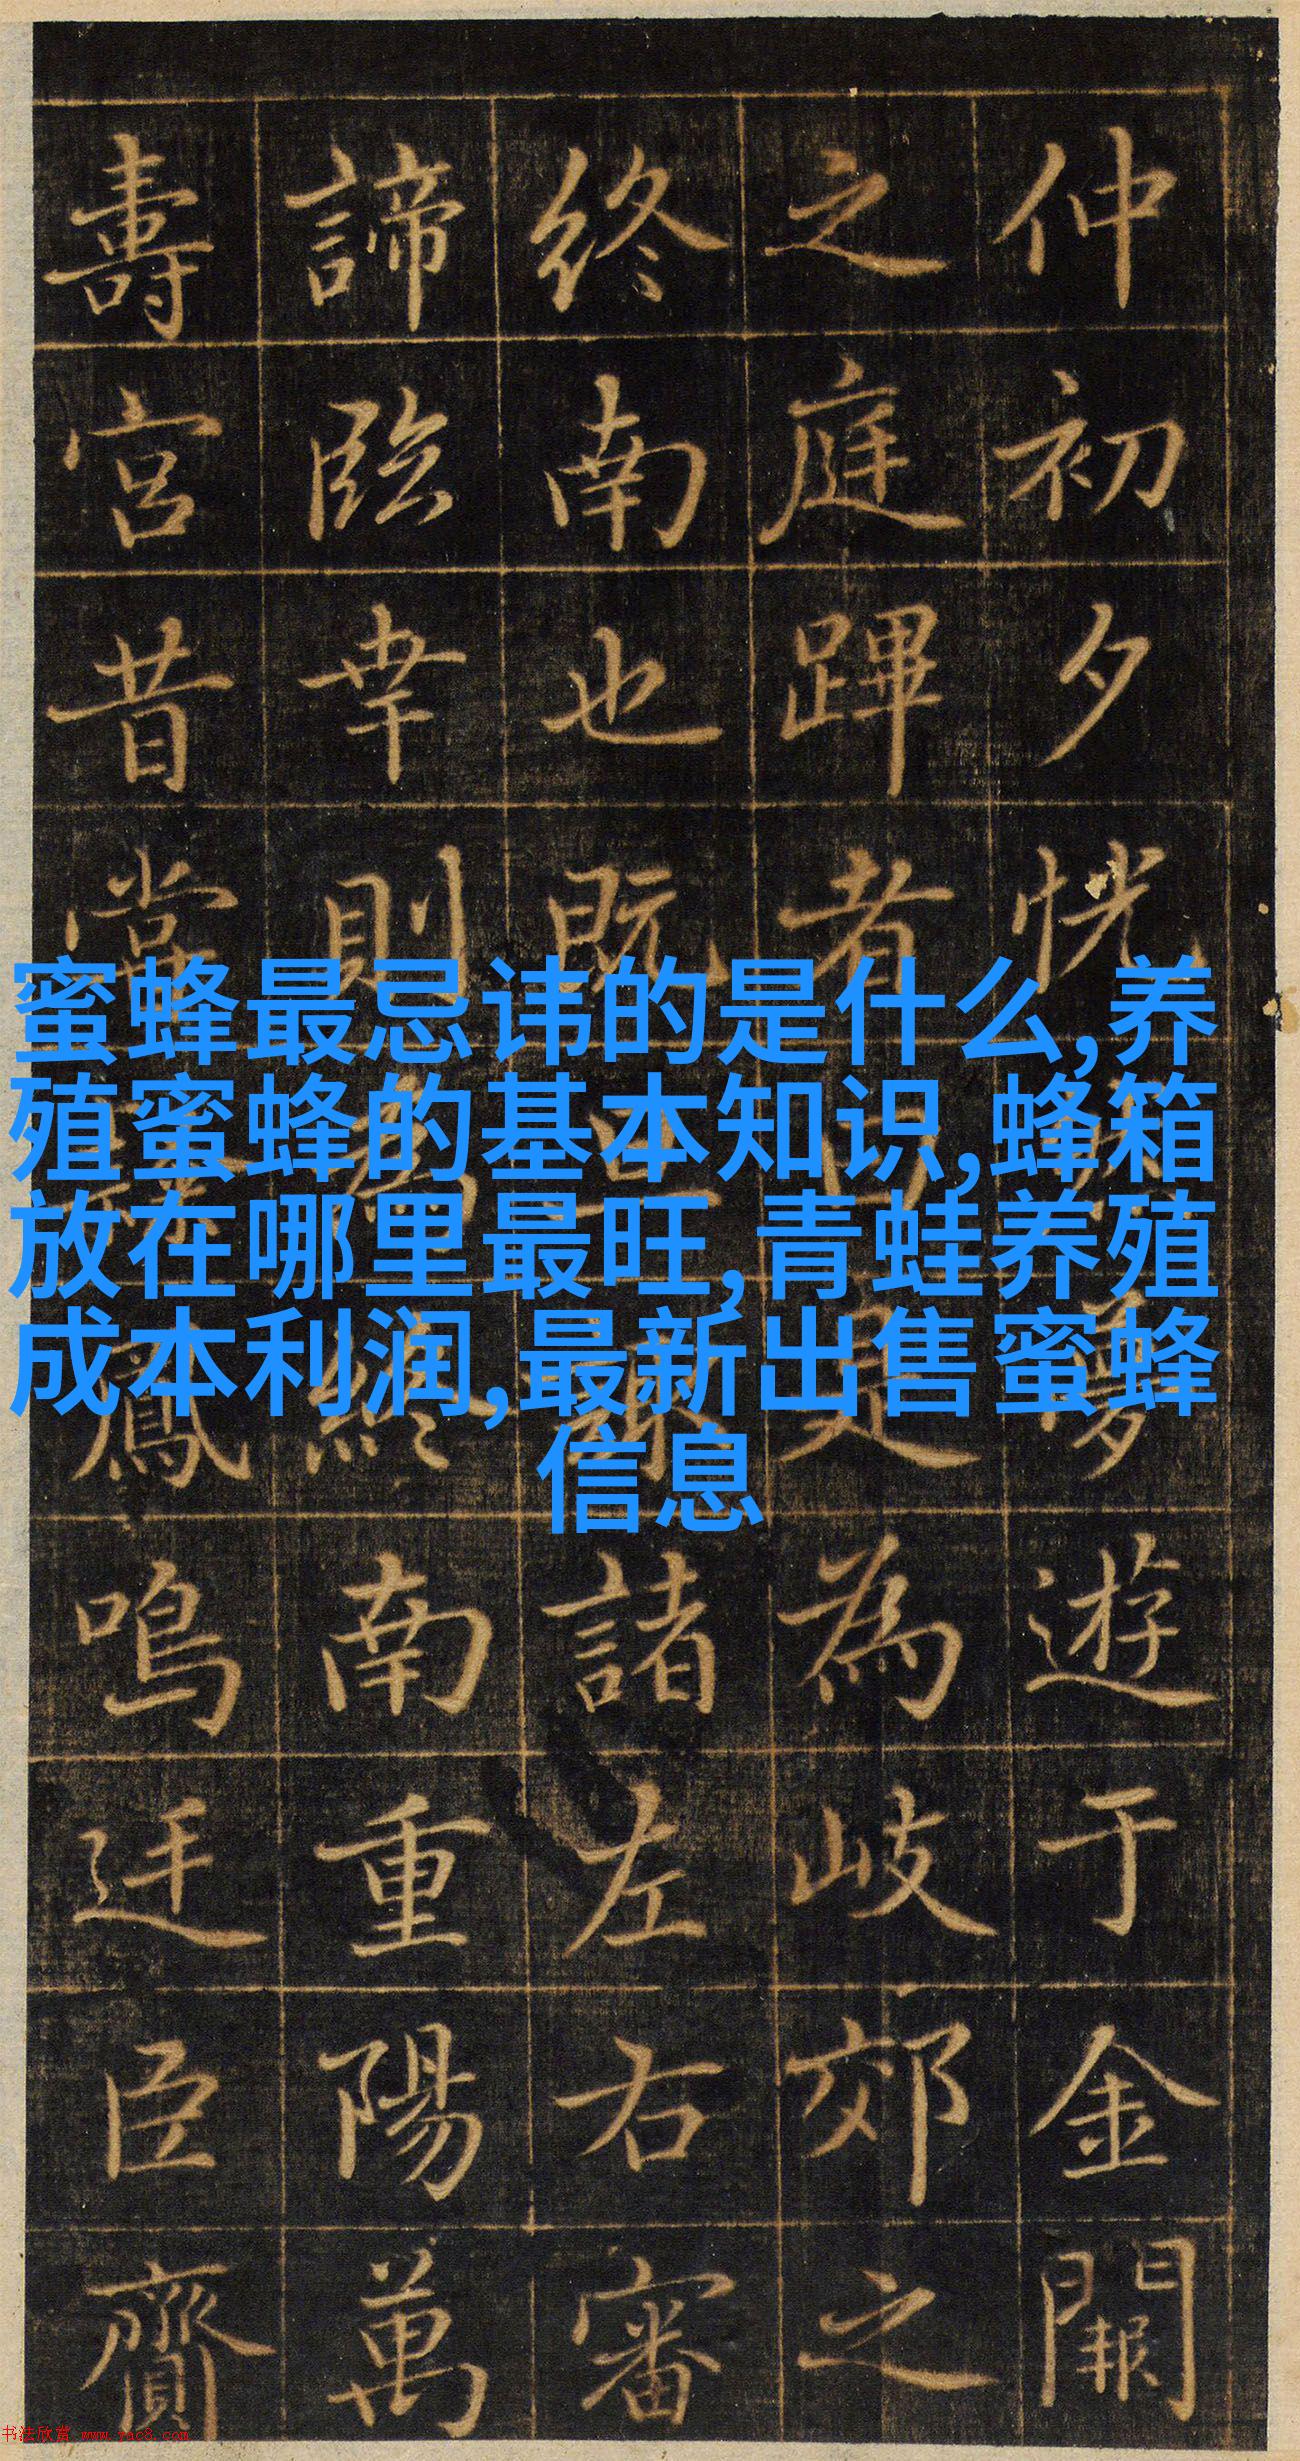 仲初夕恍夢遊于金闕
之庭蹕者曰是為岐郊之
終南也既旦諸左右審
諦臨幸則為終南重陽萬
壽宮昔鳳鳴廷臣齎
蜜蜂最忌讳的是什么,养
殖蜜蜂的基本知识,蜂箱
放在哪里最旺,青蛙养殖
成本利润,最新出售蜜蜂
信息
书法欣赏 www.yac8.com